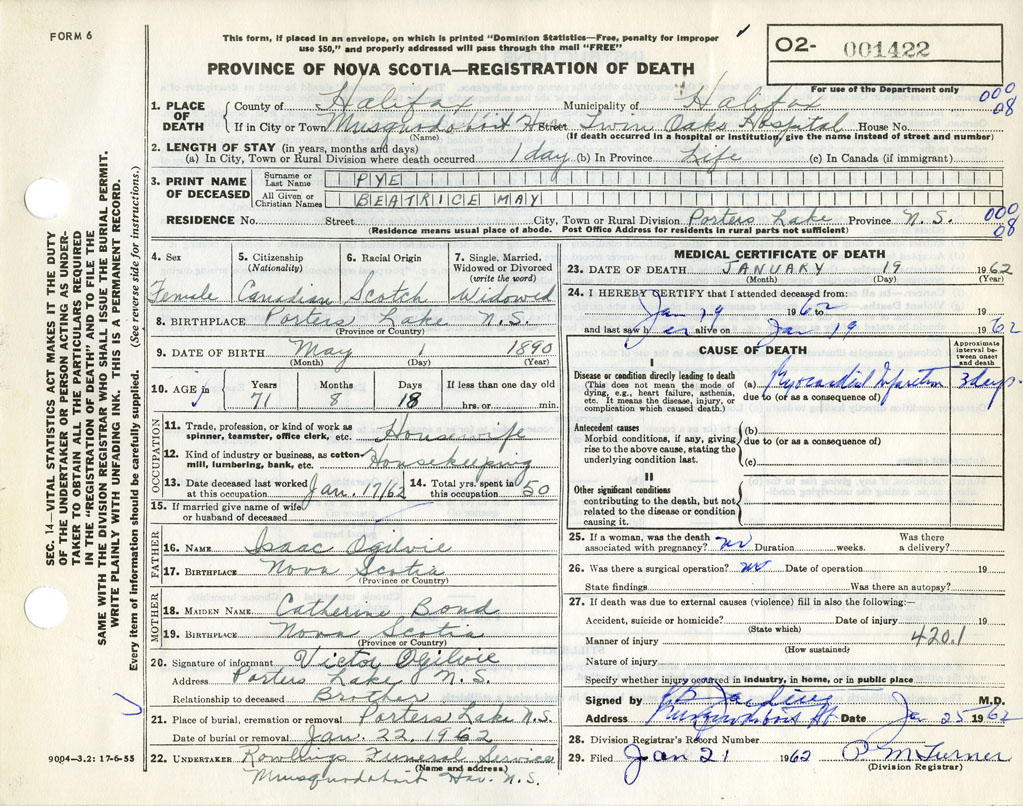 FORM 6
This form, if placed in an envelope, on which is printed "Dominion Statistics—Free, penalty for improper
use $50," and properly addressed will pass through the mail "FREE"
PROVINCE OF NOVA SCOTIA—REGISTRATION OF DEATH
O2- 001422
For use of the Department only
000
08
1. PLACE OF DEATH { County of Halifax Municipality of Halifax
If in City or Town Musquodoboit Har Street Twin Oaks Hospital House No.
(Name) (If death occurred in a hospital or institution, give the name instead of street and number)
2. LENGTH OF STAY (in years, months and days)
(a) In City, Town or Rural Division where death occurred 1 day (b) In Province Life (c) In Canada (if immigrant)
3. PRINT NAME OF DECEASED
Surname or Last Name PYE
All Given or Christian Names BEATRICE MAY
RESIDENCE No. Street City, Town or Rural Division Porters Lake Province N.S.
(Residence means usual place of abode. Post Office Address for residents in rural parts not sufficient)
000
08
4. Sex Female
5. Citizenship (Nationality) Canadian
6. Racial Origin Scotch
7. Single, Married, Widowed or Divorced (write the word) Widowed
8. BIRTHPLACE Porters Lake N.S.
(Province or Country)
9. DATE OF BIRTH May 1 1890
(Month) (Day) (Year)
10. AGE in Years 71 Months 8 Days 18 If less than one day old hrs. or min.
OCCUPATION
11. Trade, profession, or kind of work as spinner, teamster, office clerk, etc. Housewife
12. Kind of industry or business, as cotton-mill, lumbering, bank, etc. Housekeeping
13. Date deceased last worked at this occupation Jan. 17/62 14. Total yrs. spent in this occupation 50
15. If married give name of wife or husband of deceased
FATHER
16. NAME Isaac Ogilvie
17. BIRTHPLACE Nova Scotia
(Province or Country)
MOTHER
18. MAIDEN NAME Catherine Bond
19. BIRTHPLACE Nova Scotia
(Province or Country)
20. Signature of informant Victor Ogilvie
Address Porters Lake N.S.
Relationship to deceased Brother
21. Place of burial, cremation or removal Porters Lake N.S.
Date of burial or removal Jan. 22, 1962
22. UNDERTAKER Rowlings Funeral Service
(Name and address)
Musquodoboit Har. N.S.
MEDICAL CERTIFICATE OF DEATH
23. DATE OF DEATH JANUARY 19 1962
(Month) (Day) (Year)
24. I HEREBY CERTIFY that I attended deceased from:
Jan 19 1962 19
and last saw her alive on Jan 19 1962
CAUSE OF DEATH
Approximate interval between onset and death
I
Disease or condition directly leading to death
(This does not mean the mode of dying, e.g., heart failure, asthenia, etc. It means the disease, injury, or complication which caused death.)
(a) Myocardial Infarction 3 days
due to (or as a consequence of)
Antecedent causes
Morbid conditions, if any, giving rise to the above cause, stating the underlying condition last.
(b)
due to (or as a consequence of)
(c)
II
Other significant conditions
contributing to the death, but not related to the disease or condition causing it.
25. If a woman, was the death associated with pregnancy? no Duration weeks. Was there a delivery?
26. Was there a surgical operation? no Date of operation 19
State findings Was there an autopsy?
27. If death was due to external causes (violence) fill in also the following:—
Accident, suicide or homicide? Date of injury 19
(State which)
Manner of injury 420.1
(How sustained)
Nature of injury
Specify whether injury occurred in industry, in home, or in public place
Signed by M.D.
Address Musquodoboit Hr Date Jan 25 1962
28. Division Registrar's Record Number
29. Filed Jan 21 1962 P. M Turner
(Division Registrar)
SEC. 14—VITAL STATISTICS ACT MAKES IT THE DUTY
OF THE UNDERTAKER OR PERSON ACTING AS UNDER-
TAKER TO OBTAIN ALL THE PARTICULARS REQUIRED
IN THE "REGISTRATION OF DEATH" AND TO FILE THE
SAME WITH THE DIVISION REGISTRAR WHO SHALL ISSUE THE BURIAL PERMIT.
WRITE PLAINLY WITH UNFADING INK. THIS IS A PERMANENT RECORD.
Every item of information should be carefully supplied. (See reverse side for instructions.)
9004-3.2: 17-6-55